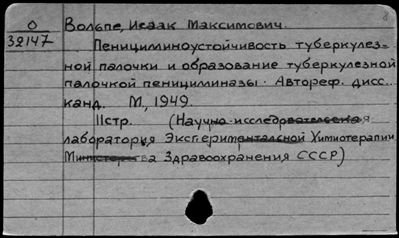 О
32147
Вольпе, Исаак Максимович.
Пенициминоустойчивость туберкулез=
ной палочки и образование туберкулезной
палочкой пенициминазы. Автореф. дисс.
канд. М., 1949.
11стр. (Научно-исследовательская
лаборатория Экспериментальной Химиотерапии
Министерства Здравоохранения СССР)